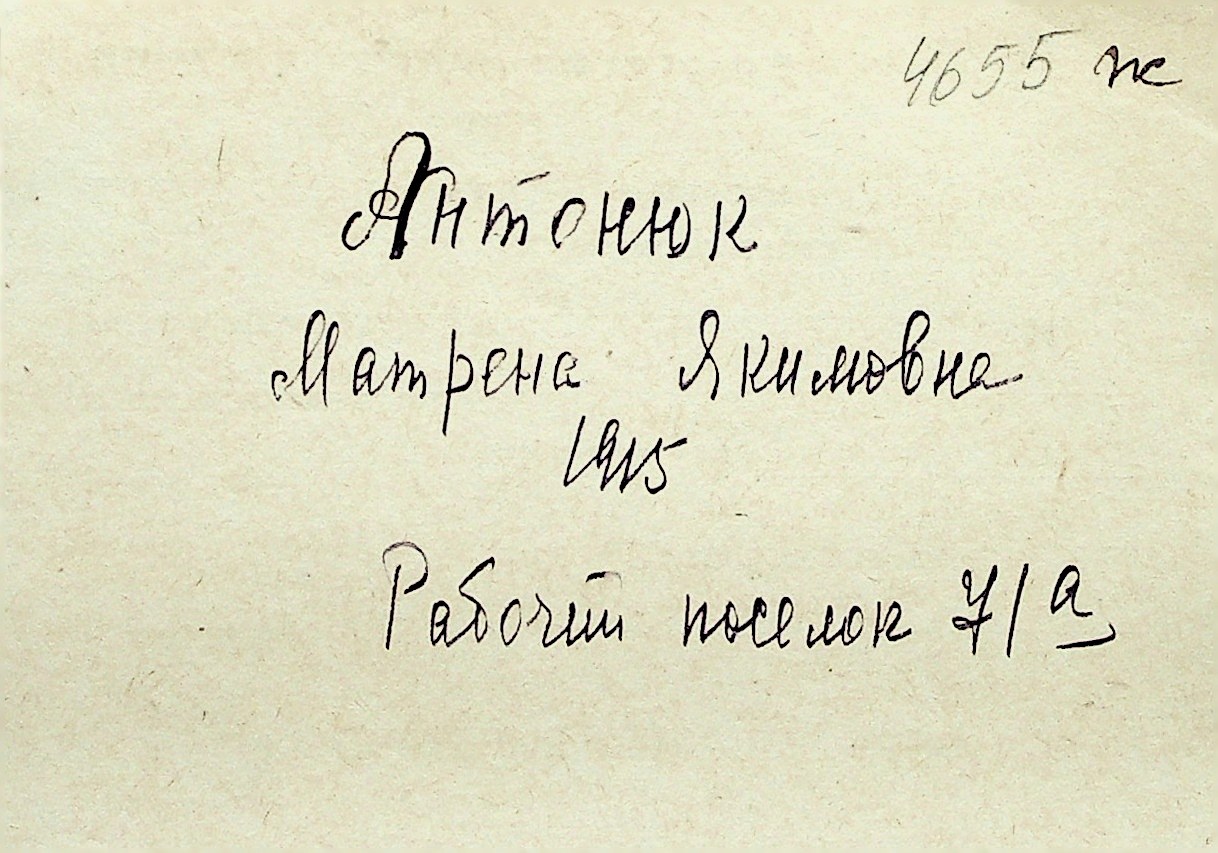 4655 ж
Антонюк
Матрена Якимовна
1915
Рабочий поселок 7/а